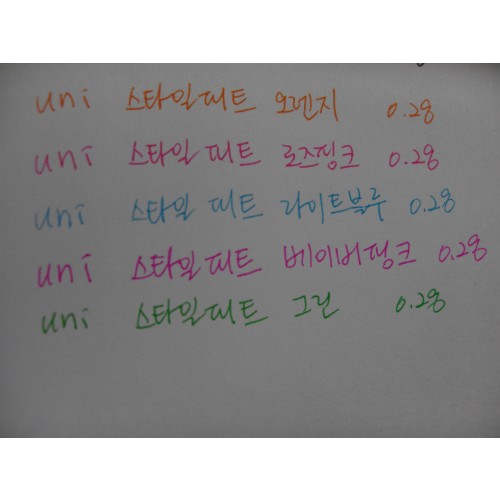 uni 스타일피트 오렌지 0.28
uni 스타일피트 로즈핑크 0.28
uni 스타일피트 라이트블루 0.28
uni 스타일피트 베이비핑크 0.28
uni 스타일피트 그린 0.28